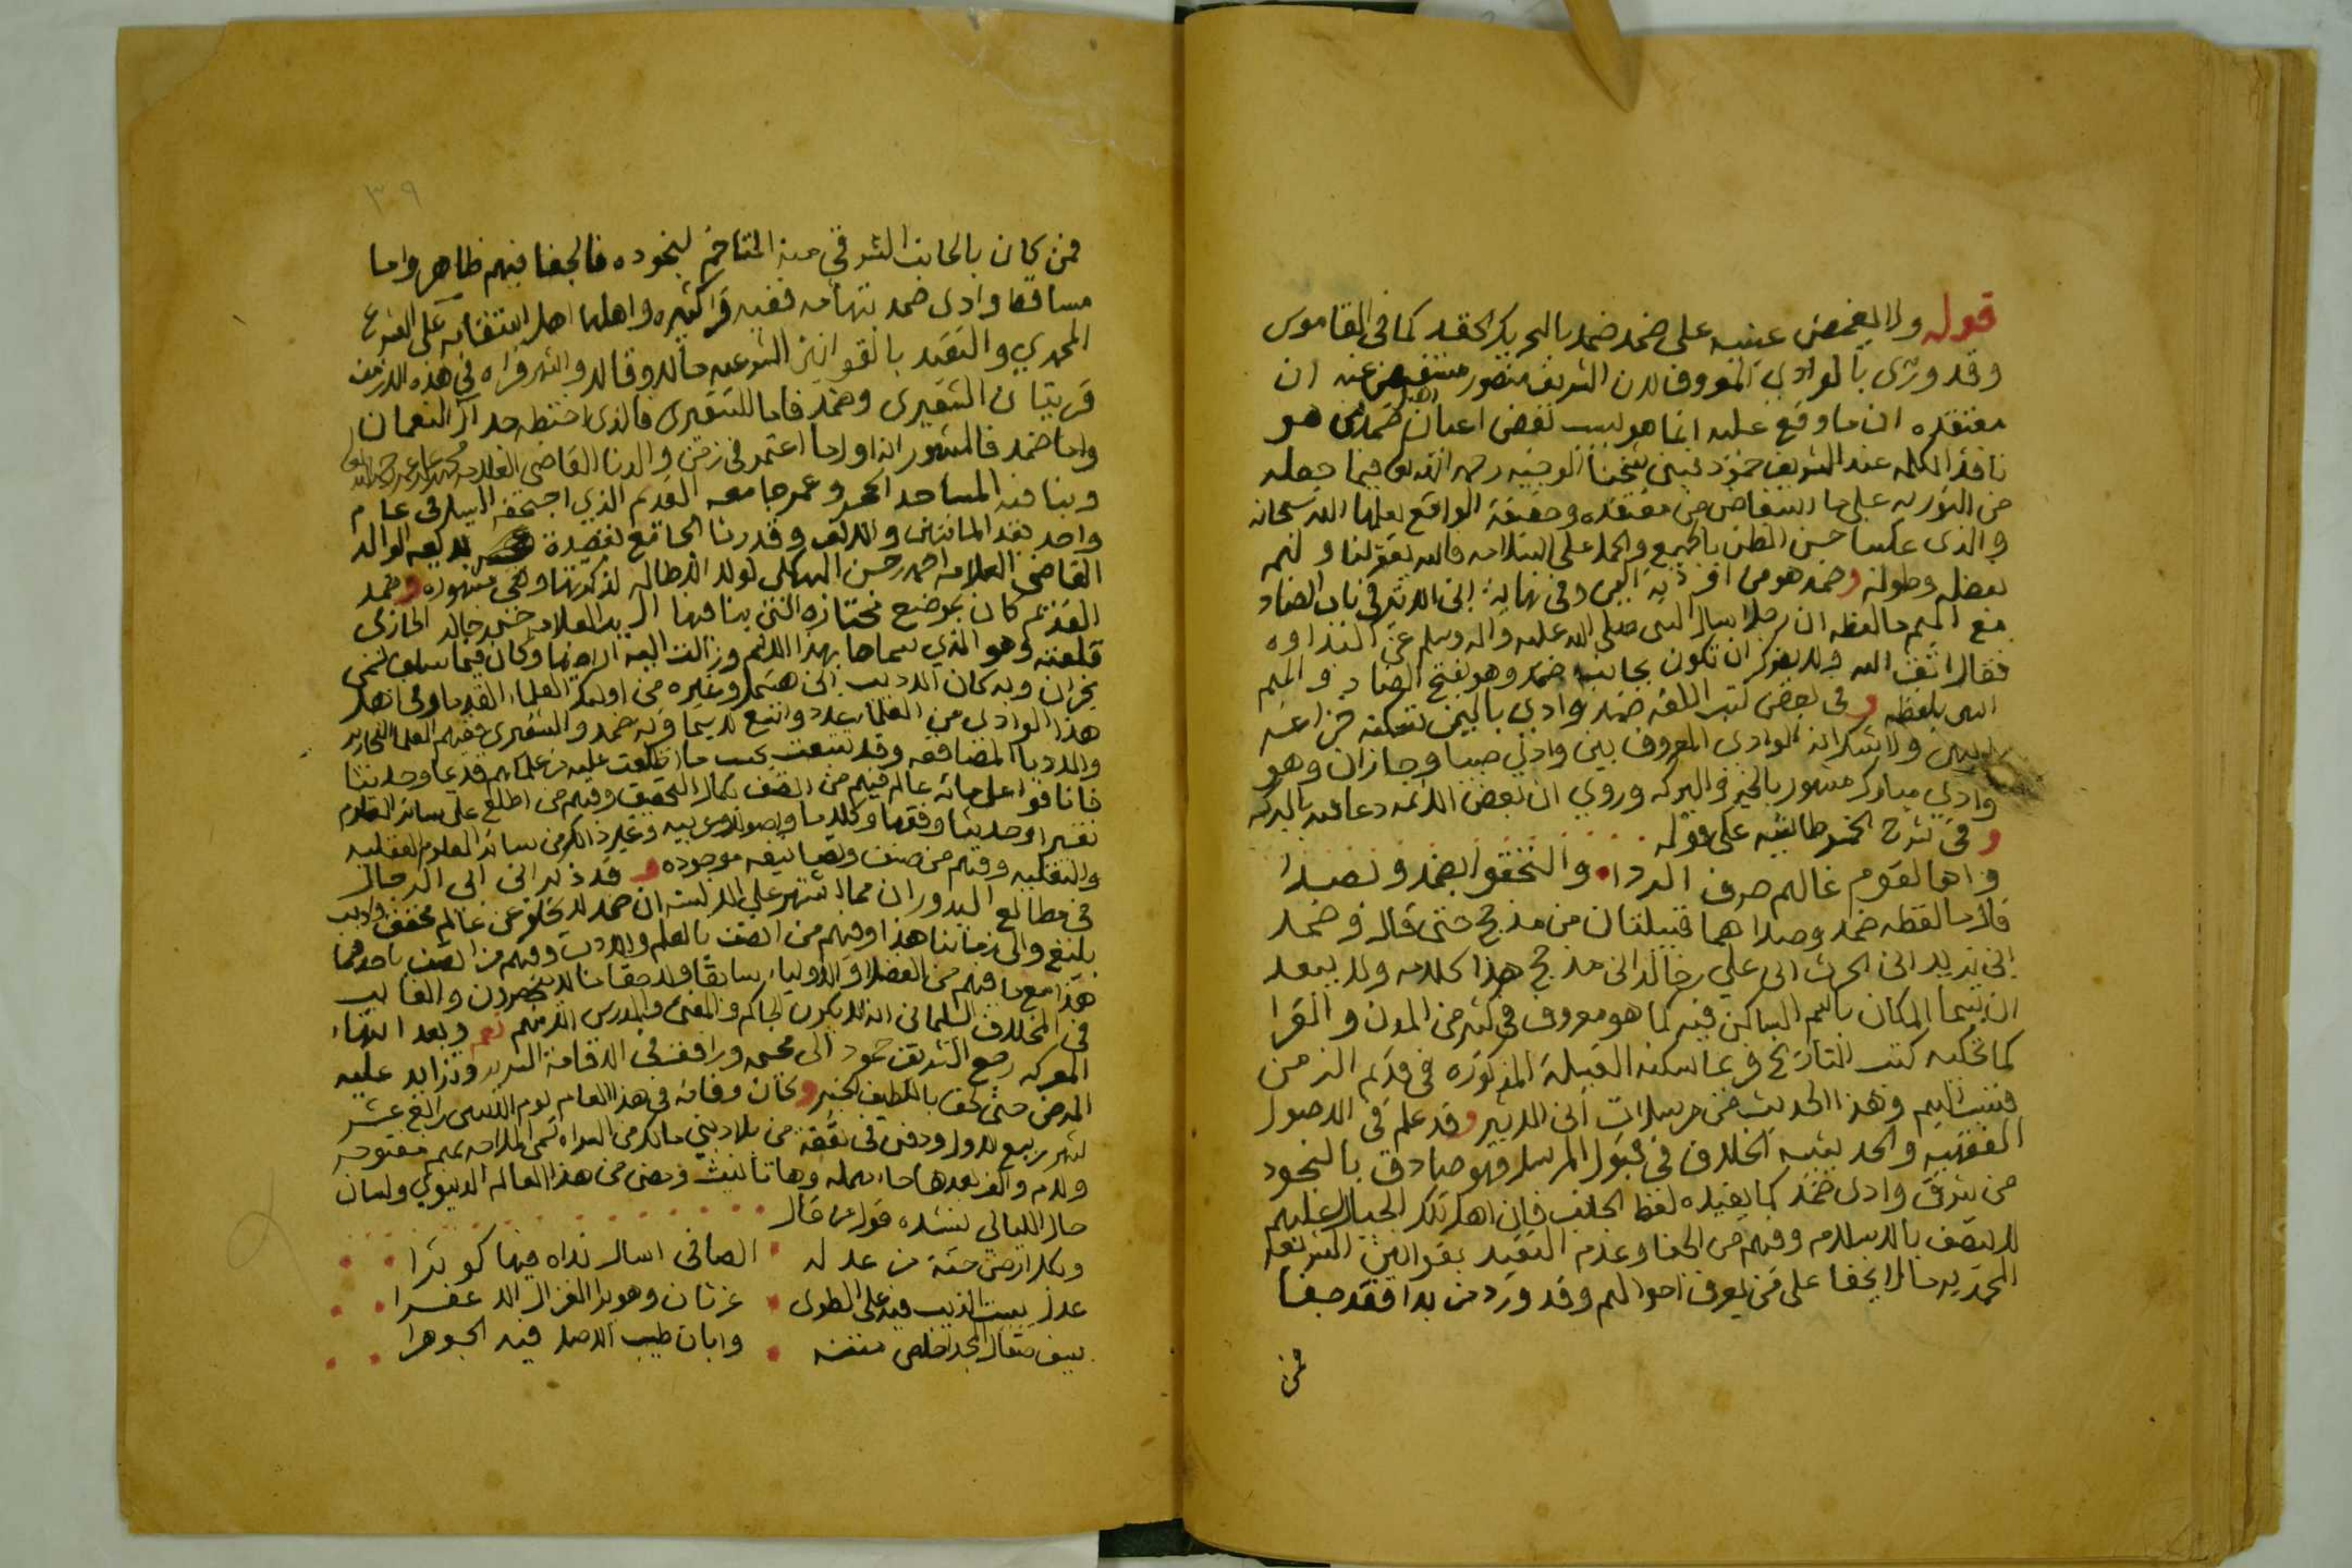 قوله ولا يغمض عينيه على ضمد ضمد بالتحريك الحقد كما في القاموس
وقد ورّى بالوادي المعروف لان الشريف منصور مستفيض عنه ان
معتقده ان ما وقع عليه انما هو بسبب بعض اعيان اهل ضمد من هو
نافذ الكلمه عند الشريف حمود فبنى شيخنا الوجيه رحمه الله تعالى فيما جعله
من التوريه على ما استفاض من معتقده وحقيقة الواقع يعلمها الله سبحانه
والذي علينا حسن الظن بالجميع والحمل على السلامه فالله يغفر لنا ولهم
بفضله وطوله وضمد هو من اوديه اليمن وفي نهاية ابن الاثير في باب الضاد
مع الميم ما لفظه ان رجلا سال النبي صلى الله عليه واله وسلم عن البداوه
فقال اتق الله ولا يضرك ان تكون بجانب ضمد وهو بفتح الضاد والميم
انتهى بلفظه وفي بعض كتب اللغه ضمد وادي باليمن تسكنه خزاعه
انتهى ولا شك انه الوادي المعروف بين وادي صبيا وجازان وهو
وادي مبارك مشهور بالخير والبركه وروي ان بعض الائمه دعا فيه بالبركه
وفي شرح الخمرطاشيه على قوله
واها لقوم غالهم صرف الردا والتحقوا بضمد وبصدا
قال ما لفظه ضمد وصدا هما قبيلتان من مذحج حتى قال وضمد
ابن يزيد ابن الحرث ابن علي بن خالد ابن مذحج هذا كلامه ولا يبعد
ان يسما المكان باسم الساكن فيه كما هو معروف في كثير من المدن والقرا
كما تحكيه كتب التاريخ فربما سكنه القبيلة المذكوره في قديم الزمن
فنسب اليهم وهذا الحديث من مرسلات ابن الاثير وقد علم في الاصول
الفقهيه والحديثيه الخلاف في قبول المرسل فهو صادق بالنجود
من شرق وادي ضمد كما يفيده لفظ الجانب فان اهل تلك الجبال عليهم
لا يتصف بالاسلام وفيهم من الجفا وعدم التقيد بقوانين الشريعه
المحمديه ما لا يخفا على من يعرف احوالهم وقد ورد من بدا فقد جفا
فمن
٣٩
فمن كان بالجانب الشرقي منه المتاخم لنجوده فالجفا فيهم ظاهر واما
مساقط وادي ضمد بتهامه ففيه قرا كثيره واهلها اهل استقامه على الشرع
المحمدي والتقيد بالقوانين الشرعيه حالا وقالا واشهر قراه في هذه الازمنه
قريتان الشقيري وضمد فاما الشقيري فالذي اختطه جد آل النعمان
واما ضمد فالمشهور انه اول ما اعتمر في زمن والدنا القاضي العلامه محمد بن علي بن عمر رحمه الله
وبنا فيه المساجد الحمد وعمر جامعه القديم الذي اجتحفه السيل في عام
واحد بعد المائتين والالف وقد رثا الجامع بقصيدة بديعه الوالد
القاضي العلامه احمد بن حسن البهكلي لولا الاطاله لذكرتها وهي مشهوره وضمد
القديم كان بموضع مختاره التي بنا فيها السيد العلامه حسن بن خالد الحازمي
قلعته وهو الذي سماها بهذا الاسم وزالت اليه اراضيها وكان فيما سلف تسمى
نجران وبه كان الاديب ابن هتيمل وغيره من اولئك العلماء القدما وفي اهل
هذا الوادي من العلماء عدد واسع لا سيما قرية ضمد والشقيري ففيهم العلما النحارير
والادبا المضافعه وقد تتبعت بحسب ما اطلعت عليه من علمائهم قديما وحديثا
فانافوا على مائة عالم فيهم من اتصف بكمال التحقيق وفيهم من اطلع على سائر العلوم
تفسيرا وحديثا وفقها وكلاما واصولا وعربيه وغير ذلك من سائر العلوم العقليه
والنقليه وفيهم من صنف وتصانيفه موجوده وقد ذكر ابن ابي الرجال
في مطالع البدور ان مما اشتهر على الالسنة ان ضمد لا تخلو عن عالم محقق واديب
بليغ والى زماننا هذا وفيهم من اتصف بالعلم والادب وفيهم من اتصف باحدهما
هذا مع ما فيهم من الفضلا والاوليا سابقا ولاحقا ما لا ينحصرون والغالب
في المخلاف السليماني انه لا يكون الحاكم والمفتي والمدرس الا منهم نعم وبعد انتهاء
المعركه رجع الشريف حمود الى محمه ورافقه في الاقامة السريه وتزايد عليه
المرض حتى لحق باللطيف الخبير وكان وفاته في هذا العام يوم الاثنين رابع عشر
شهر ربيع الاول ودفن في بقعة من بلاد بني مالك من السراه تسمى الملاحه بميم مفتوحه
ولام والف بعدها حاء مهمله وهاء تانيث ومضى من هذا العالم الدنيوي ولسان
حال الليالي تنشده قول من قال
وبكل ارض جنة من عدله الصافي اسال نداه فيها كوثرا
عدل يبيت الذيب فيه على الطوى غرثان وهو يرا الغزال الاعفرا
بسيف صقال المجد اخلص متنه وابان طيب الاصل فيه الجوهرا